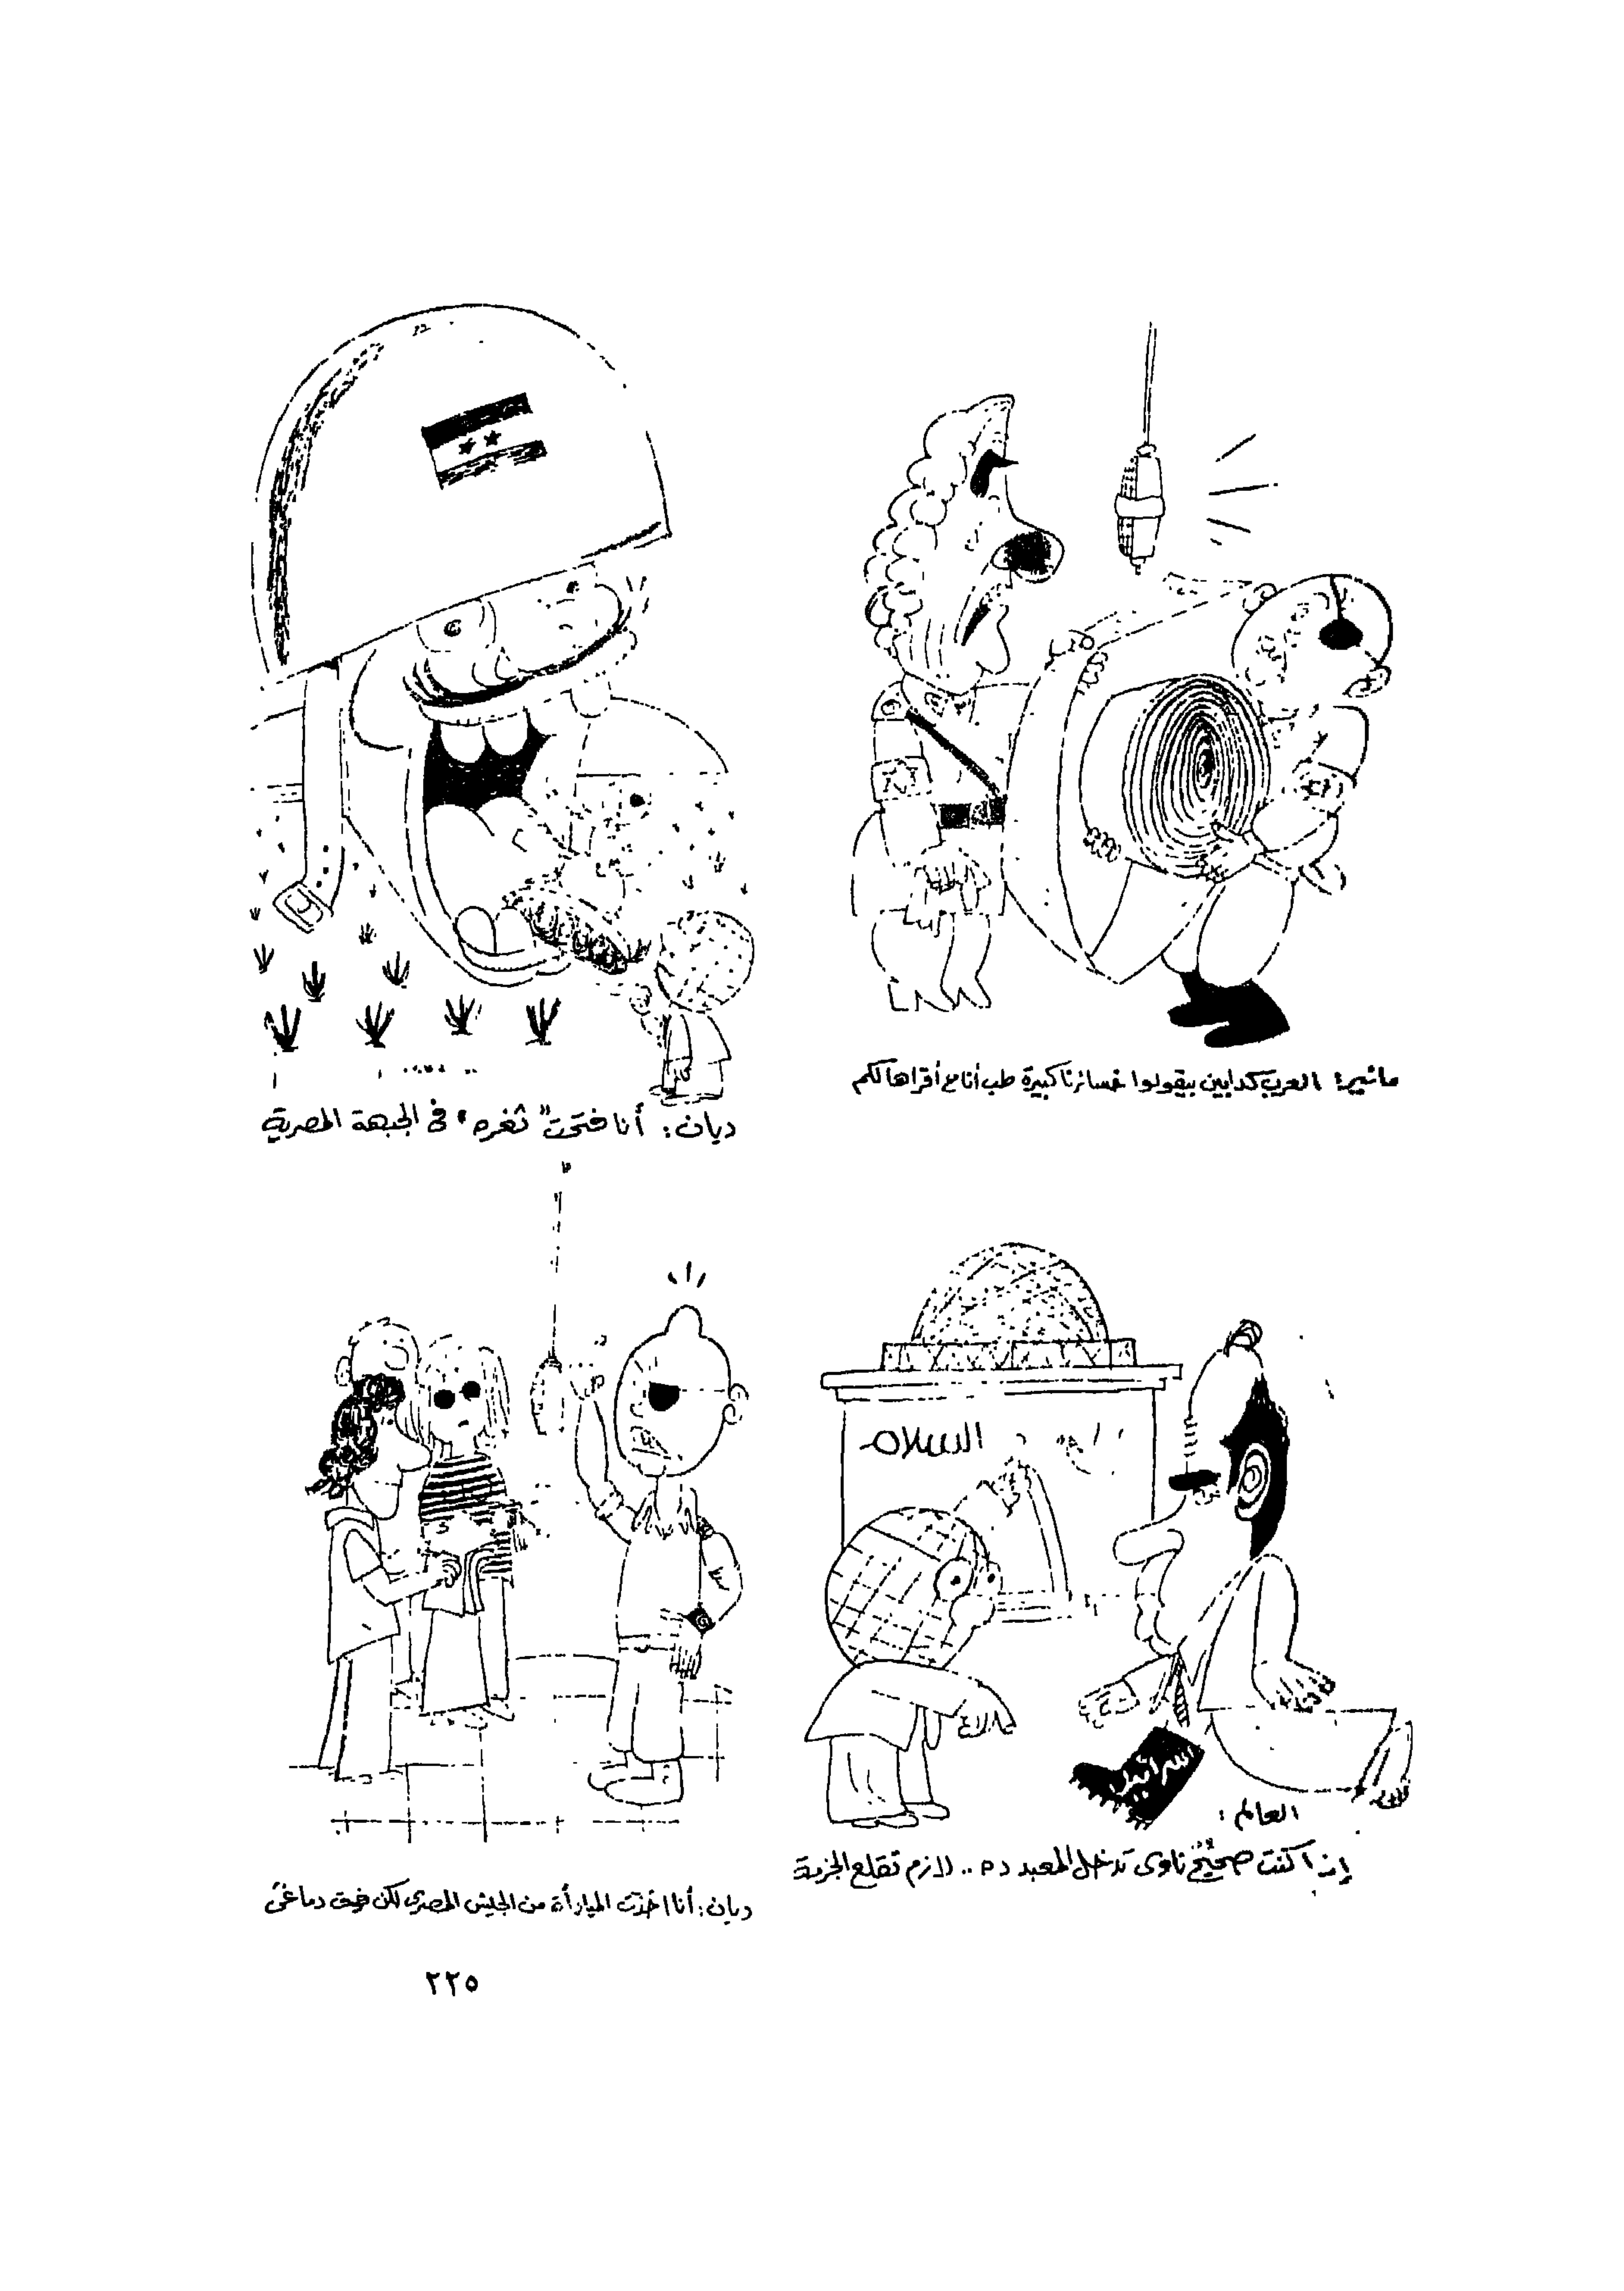 مائير: العرب كدابين بيقولوا خسائرنا كبيرة طب أنا ح أقراها لكم
ديان: أنا فتحت "ثغره" فى الجبهة المصرية
السلام
العالم
اسرائيل
العالم:
إذا كنت صحيح ناوى تدخل المعبد ده .. لازم تقلع الجزمة
ديان: أنا اخذت المبادأة من الجيش المصرى لكن فوق دماغى
٢٢٥